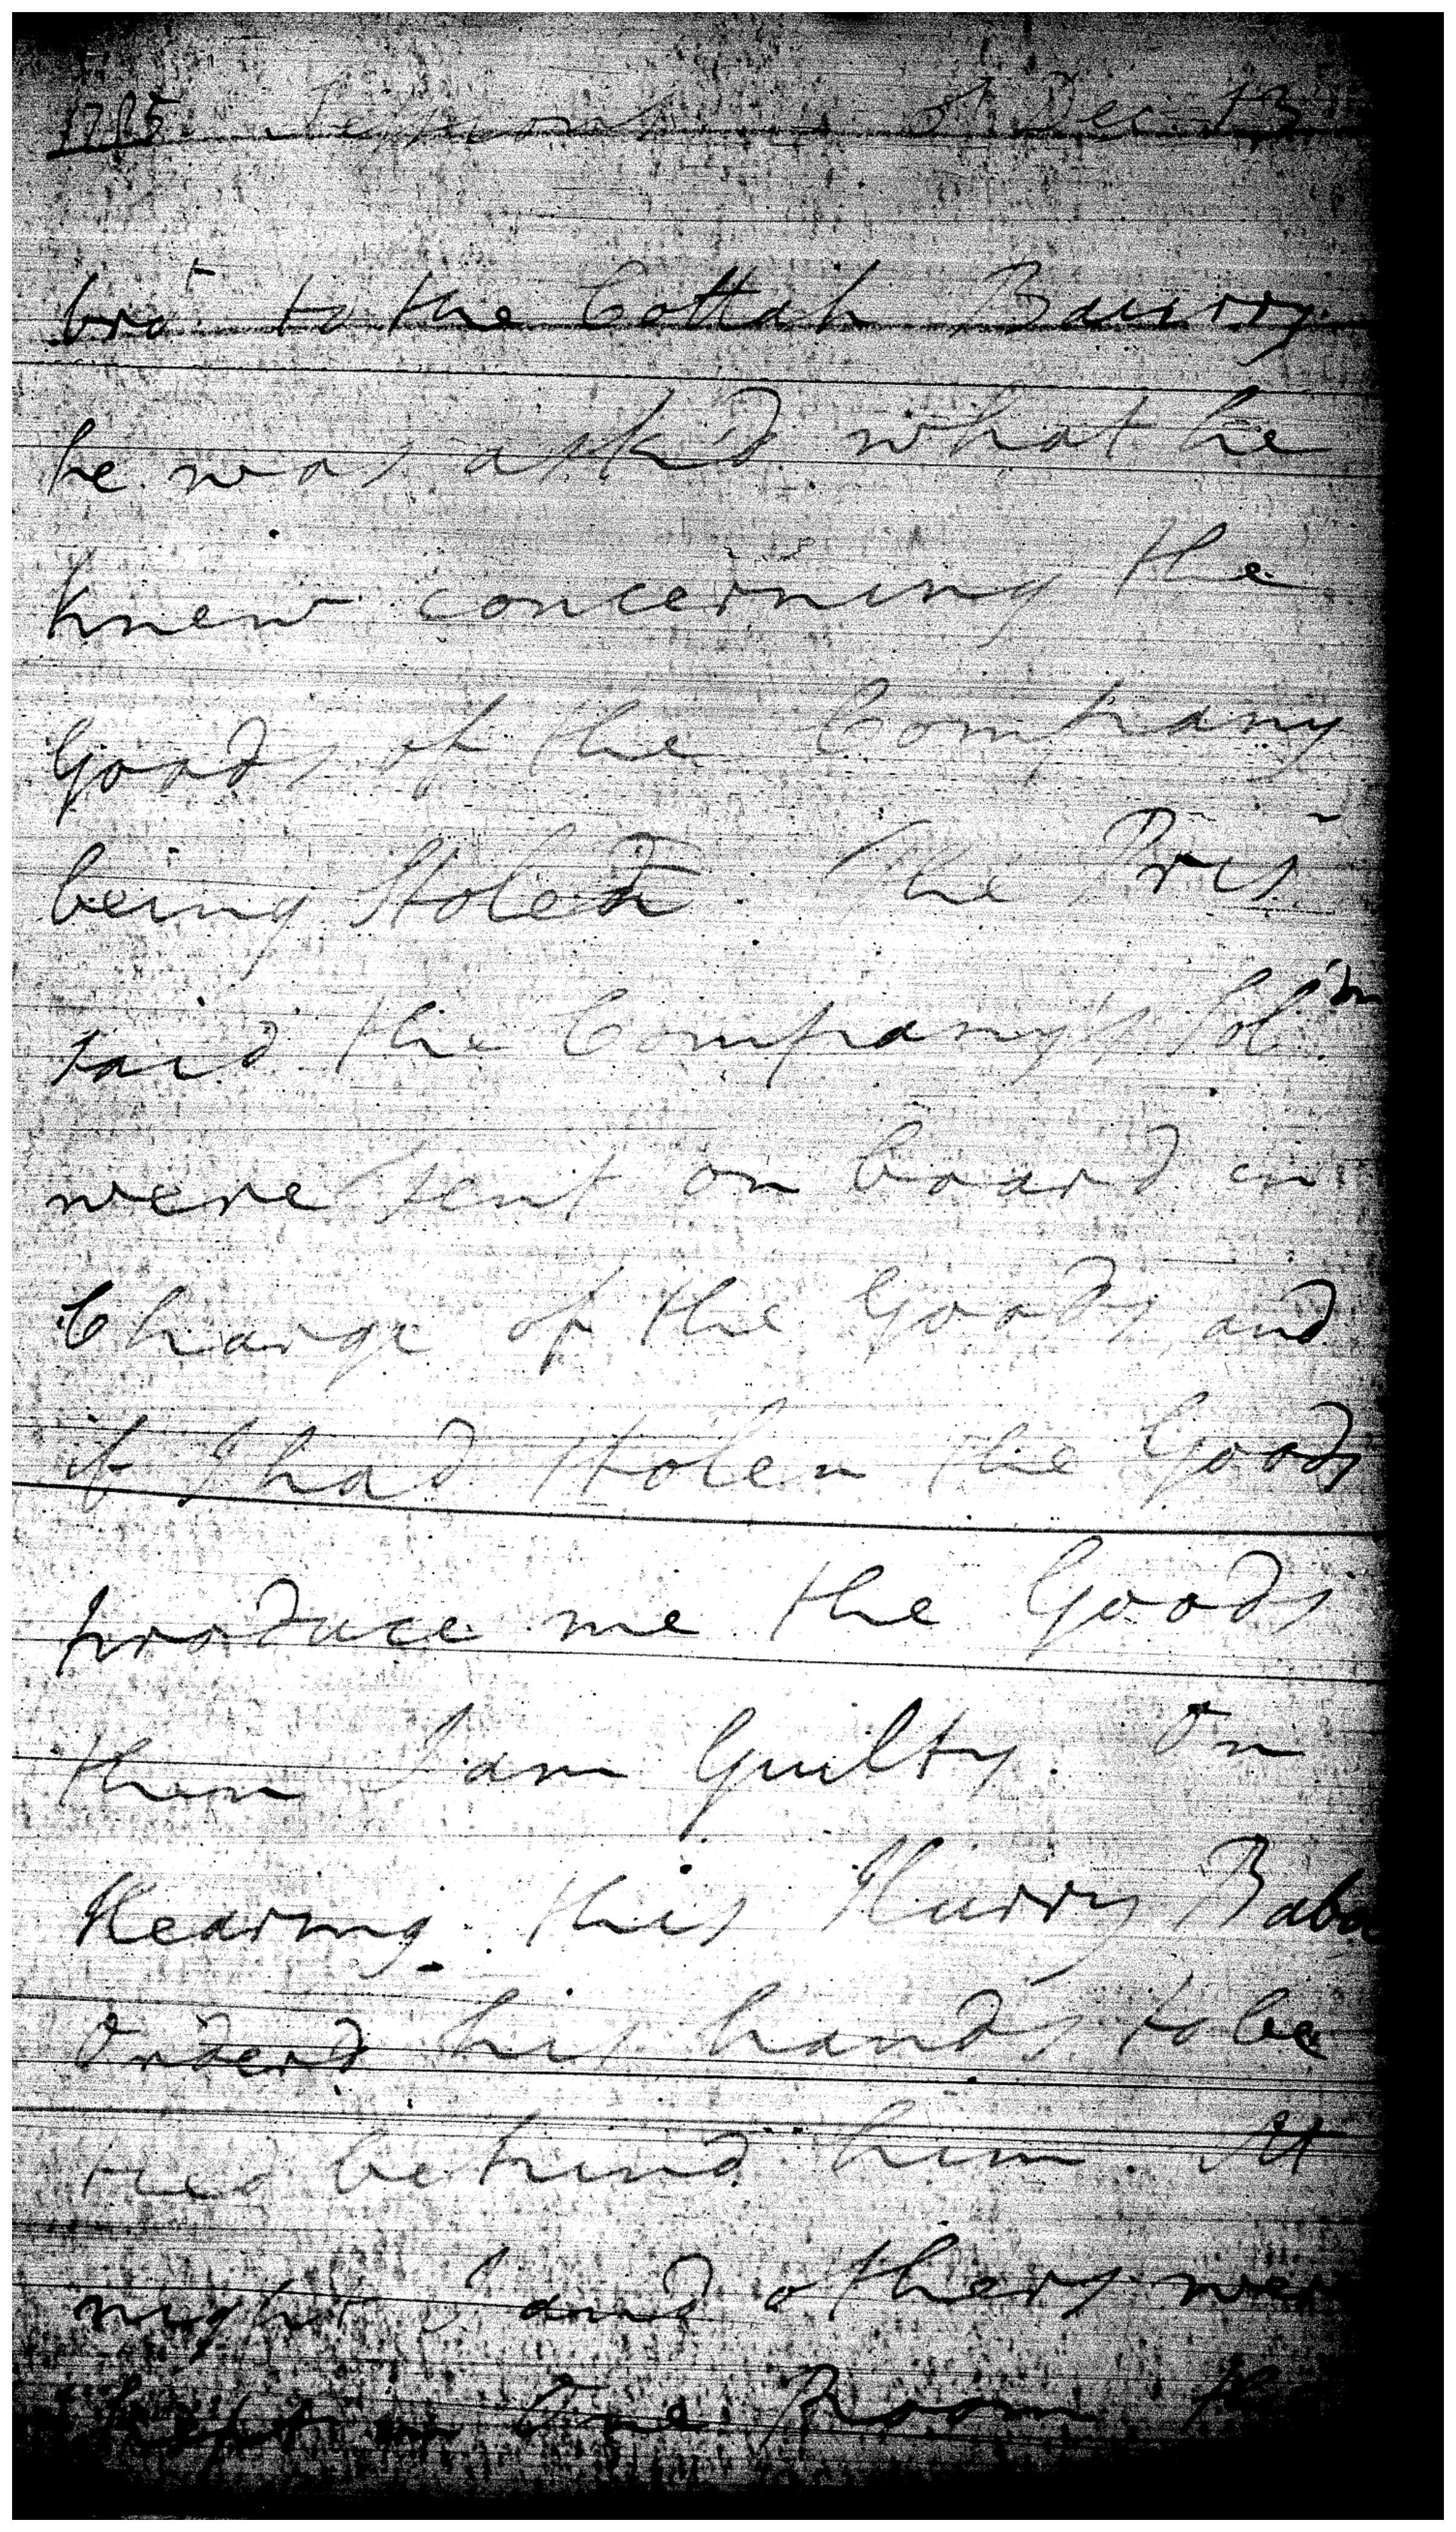 1785 of Dec 13
bro.t to the Cottah Baurry
he was ask'd what he
knew concerning the
Goods of the Company
being Stolen. The Pris~
said the Company's
were sent on board in
Charge of the Goods, and
if I had Stolen the Goods
produce me the Goods
then I am Guilty. On
Hearing this Hurry Babo
Orderd his hands to be
tied behind him. At
night I and others wer
kept in One Room